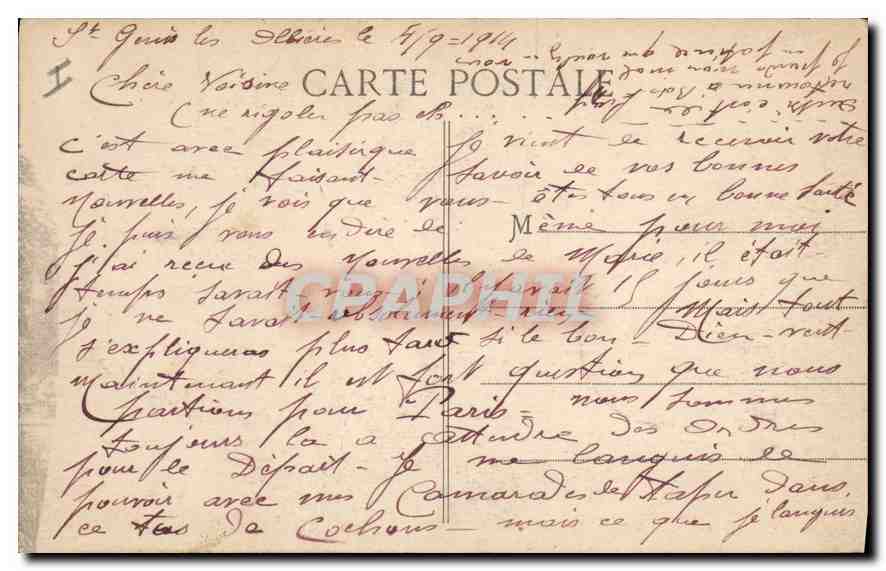 St Genis les Ollières le 4/9=1914
I
CARTE POSTALE
Chère Voisine
(ne rigoler pas eh.....
c'est avec plaisir que je vient de recevoir votre
carte me faisant savoir de vos bonnes
Nouvelles, je vois que vous êtes tous en bonne santé
je puis vous en dire de Même pour moi
j'ai recue des Nouvelles de Marie, il était
temps savait 15 jours que
je ne savait absolument rien, Mais tout
s'expliqueras plus tard si le bon-Dieu-veut
Maintenant il est fort question que nous
partions pour Paris- nous sommes
toujours la a attendre des Ordres
pour le Départ- Je me languis de
pouvoir avec mes Camarades de taper dans
ce tas de Cochons- mais ce que je languis
CPAPHIL